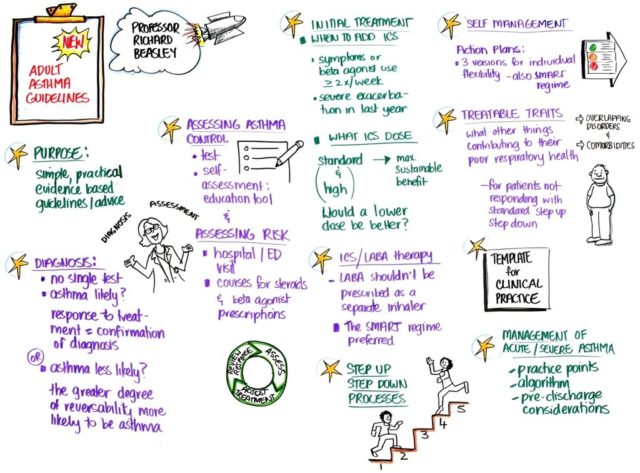 NEW
ADULT
ASTHMA
GUIDELINES
PROFESSOR
RICHARD
BEASLEY
PURPOSE:
simple, practical
evidence based
guidelines/advice
DIAGNOSIS
ASSESSMENT
DIAGNOSIS:
no single test
asthma likely?
response to treat-
ment = confirmation
of diagnosis
OR
asthma less likely?
the greater degree
of reversability more
likely to be asthma
ASSESSING ASTHMA
CONTROL
test
self-
assessment:
education tool
&
ASSESSING RISK
hospital/ED
visit
courses for steroids
& beta agonist
prescriptions
REVIEW RESPONSE
ASSESS
ADJUST TREATMENT
INITIAL TREATMENT
WHEN TO ADD ICS
symptoms or
beta agonist use
≥2x/week
severe exacerba-
tion in last year
WHAT ICS DOSE
standard → max
& sustainable
high benefit
Would a lower
dose be better?
ICS/LABA therapy
LABA shouldn't be
prescribed as a
separate inhaler
The SMART regime
preferred
STEP UP
STEP DOWN
PROCESSES
1 2 3 4 5
SELF MANAGEMENT
Action Plans:
3 versions for individual
flexibility - also SMART
regime
TREATABLE TRAITS
what other things
contributing to their
poor respiratory health
→ OVERLAPPING
DISORDERS
&
→ COMORBIDITIES
- for patients not
responding with
standard step up
step down
TEMPLATE
for
CLINICAL
PRACTICE
MANAGEMENT OF
ACUTE/SEVERE ASTHMA
- practice points
- algorithm
- pre-discharge
considerations